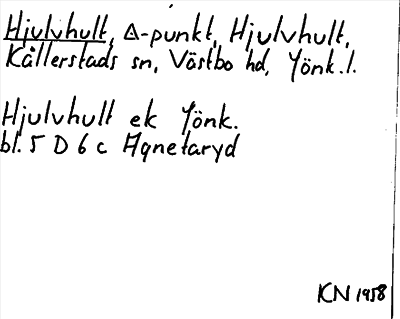 Hjulvhult, Δ-punkt, Hjulvhult,
Kållerstads sn, Västbo hd, Jönk. l.
Hjulvhult ek Jönk.
bl. 5 D 6 c Agnetaryd
KN 1958